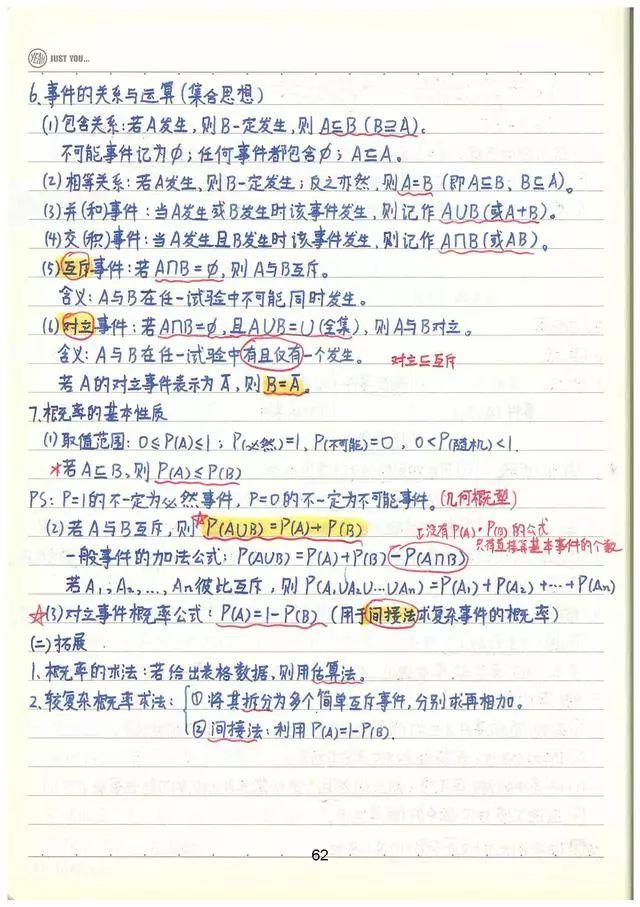 YEAH JUST YOU...
6.事件的关系与运算(集合思想)
(1)包含关系:若A发生,则B一定发生,则A⊆B(B⊇A)。
不可能事件记为∅;任何事件都包含∅;A⊆A。
(2)相等关系:若A发生,则B一定发生;反之亦然,则A=B(即A⊆B、B⊆A)。
(3)并(和)事件:当A发生或B发生时该事件发生,则记作A∪B(或A+B)。
(4)交(积)事件:当A发生且B发生时该事件发生,则记作A∩B(或AB)。
(5)互斥事件:若A∩B=∅,则A与B互斥。
含义:A与B在任一试验中不可能同时发生。
(6)对立事件:若A∩B=∅,且A∪B=U(全集),则A与B对立。
含义:A与B在任一试验中有且仅有一个发生。 对立⊆互斥
若A的对立事件表示为Ā,则B=Ā。
7.概率的基本性质
(1)取值范围:0≤P(A)≤1;P(必然)=1,P(不可能)=0,0<P(随机)<1.
*若A⊆B,则P(A)≤P(B)
PS:P=1的不一定为必然事件,P=0的不一定为不可能事件。(几何概型)
(2)若A与B互斥,则☆P(A∪B)=P(A)+P(B)
↑没有P(A)·P(B)的公式
只有直接算基本事件的个数
一般事件的加法公式:P(A∪B)=P(A)+P(B)-P(A∩B)
若A₁,A₂,...,Aₙ彼此互斥,则P(A₁∪A₂∪...∪Aₙ)=P(A₁)+P(A₂)+...+P(Aₙ)
☆(3)对立事件概率公式:P(A)=1-P(B)(用于间接法求复杂事件的概率)
(二)拓展
1.概率的求法:若给出表格数据,则用估算法。
2.较复杂概率求法:①将其拆分为多个简单互斥事件,分别求再相加。
②间接法:利用P(A)=1-P(B).
62